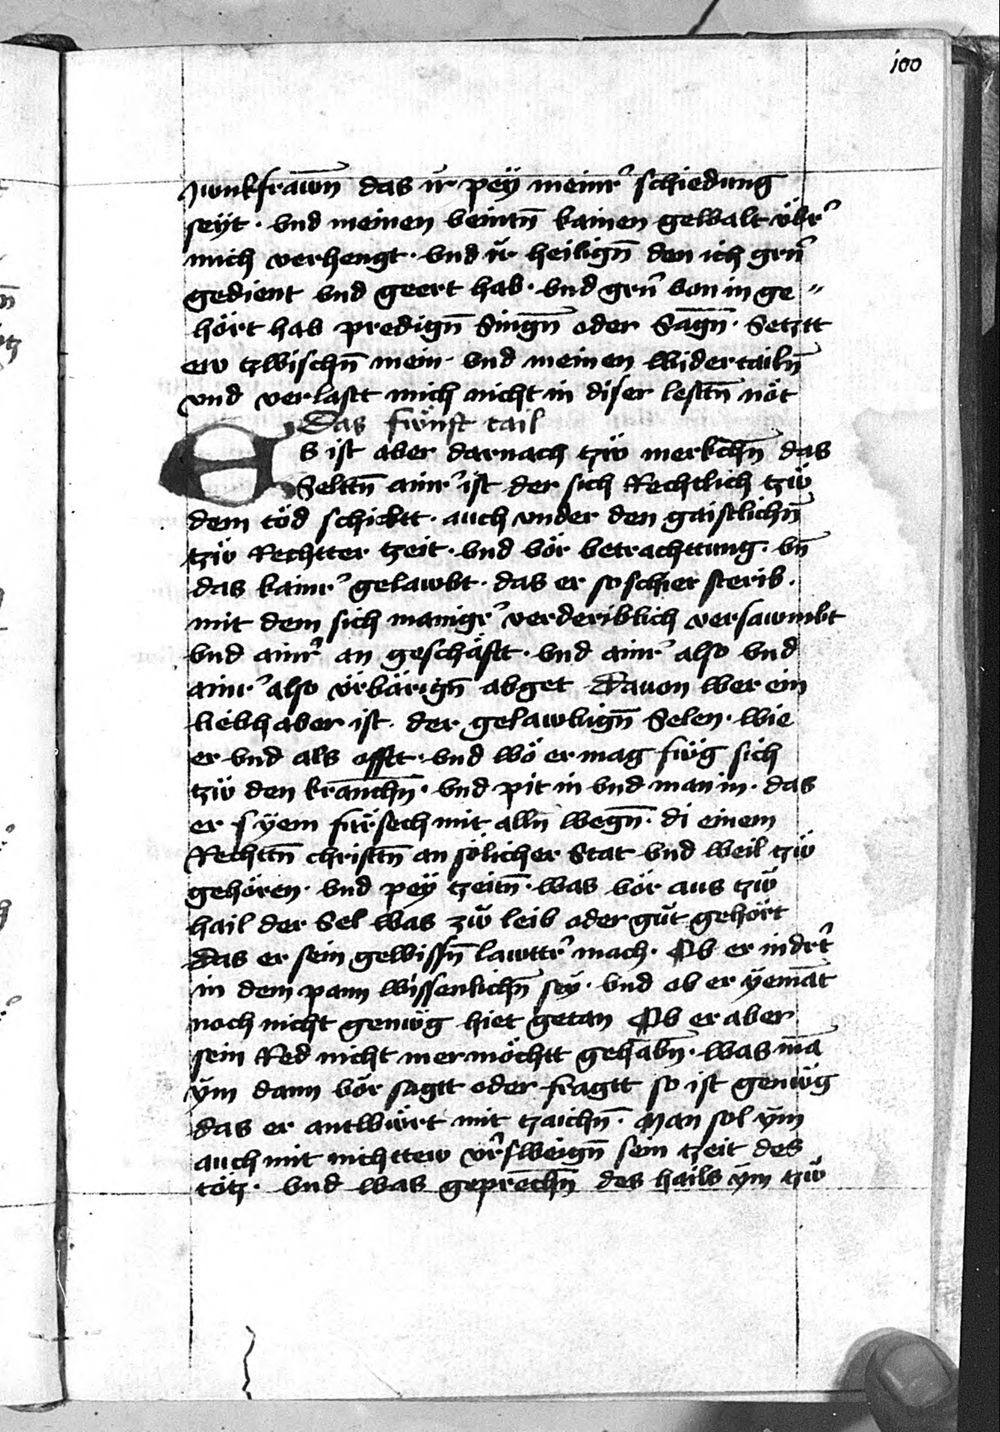 100
Junkfrawn̄ das ir peÿ meinr̉ schiedung
seÿt · vnd meinen veintn̄ kainen gewalt vbr̉
mich verhengt · vnd ir heilign̄ den ich grn̄
gedient vnd geert hab · vnd grn̄ von in ge〃
hört hab predign̄ Singn̄ oder Sagn̄ · Setztt
ew tzwischn̄ mein · vnd meinen widertailn̄
vnd verlastt mich nicht in diser lesttn̄ nöt
Das fwnft tail
ES ist aber darnach tzw̋ merkchn̄ das
Selttn̄ ainr̉ ist der sich Rechtlich tzw̋
dem töd schicktt · auch vnder den gaistlichn̄
tzw̋ Rechtter tzeit · vnd vör betrachttung · vn̄
das kainr̉ gelawbt · das er so schier sterib ·
mit dem sich manigr̉ verderiblich versawmbt
vnd ainr̉ an geschäftt · vnd ainr̉ also vnd
ainr̉ also vrbärign̄ abget Dauon wer ein
liebhaber ist · der gelawbign̄ Selen · wie
er vnd als offtt · vnd wö er mag fwg sich
tzw̋ den kranchn̄ · vnd pit in vnd man in · das
er sÿem fürsech mit alln̄ wegn̄ · di einem
Rechttn̄ christtn̄ an sölicher Stat vnd weil tzw̋
gehören · vnd peÿ tzeitn̄ · was vör aus tzw̋
hail der Sel was zw̋ leib oder gut gehört
das er sein gewissn̄ lawttr̉ mach · Ob er indrt̉
in dem pann wissenlichn̄ seÿ · vnd ob er ÿemāt
noch nicht genwg hiet getan Ob er aber
sein Red nicht mer möchtt gehabn̄ · was mā
ÿm dann vör sagtt oder fragtt so ist genwg
das er antwürt mit tzaichn̄ · Man sol ÿm
auch mit nichttew vr̉sweign̄ sein tzeit des
tötz · vnd was geprechn̄ des hails ÿm tzw̋